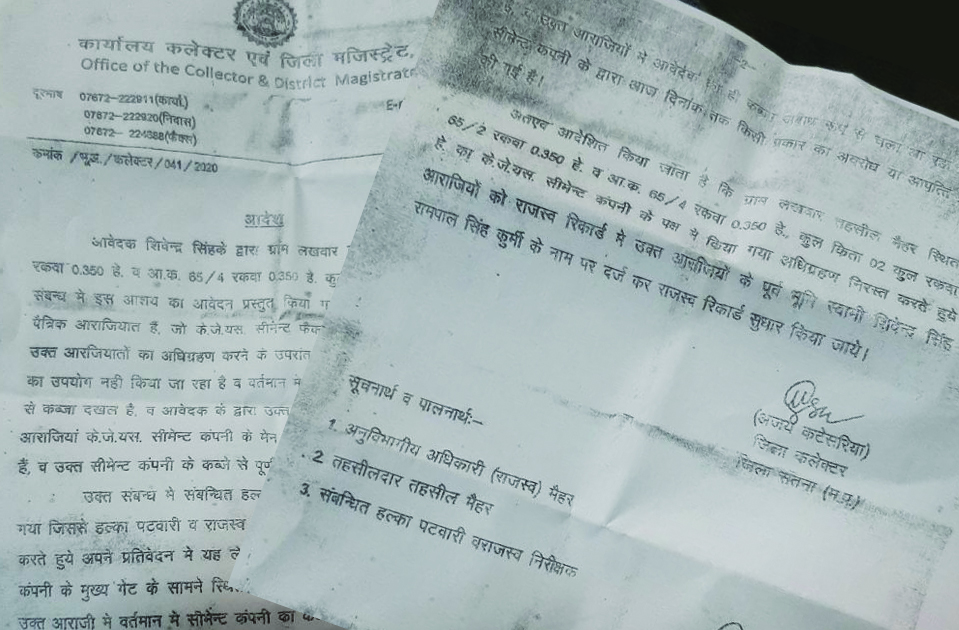 कार्यालय कलेक्टर एवं जिला मजिस्ट्रेट,
Office of the Collector & District Magistrate
दूरभाष 07672-222911(कार्या.)
07672-222920(निवास)
07672-224388(फैक्स)
क्रमांक /भू.अ./कलेक्टर/041/2020
आदेश
आवेदक शिवेन्द्र सिंहके द्वारा ग्राम लखवार
रकवा 0.350 हे. व आ.क. 65/4 रकवा 0.350 हे. कु
संबन्ध मे इस आशय का आवेदन प्रस्तुत किया ग
पैत्रिक आराजियात हैं, जो के.जे.यस. सीमेन्ट फैक
उक्त आरजियातों का अधिग्रहण करने के उपरांत
का उपयोग नही किया जा रहा है व वर्तमान मे
से कब्जा दखल है, व आवेदक के द्वारा उक्त
आराजियां के.जे.यस. सीमेन्ट कंपनी के मेन
हैं, व उक्त सीमेन्ट कंपनी के कब्जे से पूर्ण
उक्त संबन्ध मे संबन्धित हल
गया जिससे हल्का पटवारी व राजस्व
करते हुये अपने प्रतिवेदन मे यह
कंपनी के मुख्य गेट के सामने स्थि
उक्त आराजी मे वर्तमान मे सीमेन्ट कंपनी का
-2-
उक्त आराजियों मे आवेदक का ही कब्जा रूप से चला आ रहा
सीमेन्ट कंपनी के द्वारा आज दिनांक तक किसी प्रकार का अवरोध या आपत्ति
की गई है।
अतएव आदेशित किया जाता है कि ग्राम लखवार तहसील मैहर स्थित
65/2 रकवा 0.350 हे. व आ.क. 65/4 रकवा 0.350 हे., कुल किता 02 कुल रकवा
हे. का के.जे.यस. सीमेन्ट कंपनी के पक्ष मे किया गया अधिग्रहण निरस्त करते हुये
आराजियों को राजस्व रिकार्ड मे उक्त आराजियों के पूर्व भूमि स्वामी शिवेन्द्र सिंह
रामपाल सिंह कुर्मी के नाम पर दर्ज कर राजस्व रिकार्ड सुधार किया जाये।
(अजय कटेसरिया)
जिला कलेक्टर
जिला सतना (म.प्र.)
सूचनार्थ व पालनार्थ:-
1. अनुविभागीय अधिकारी (राजस्व) मैहर
2 तहसीलदार तहसील मैहर
3. संबन्धित हल्का पटवारी वराजस्व निरीक्षक